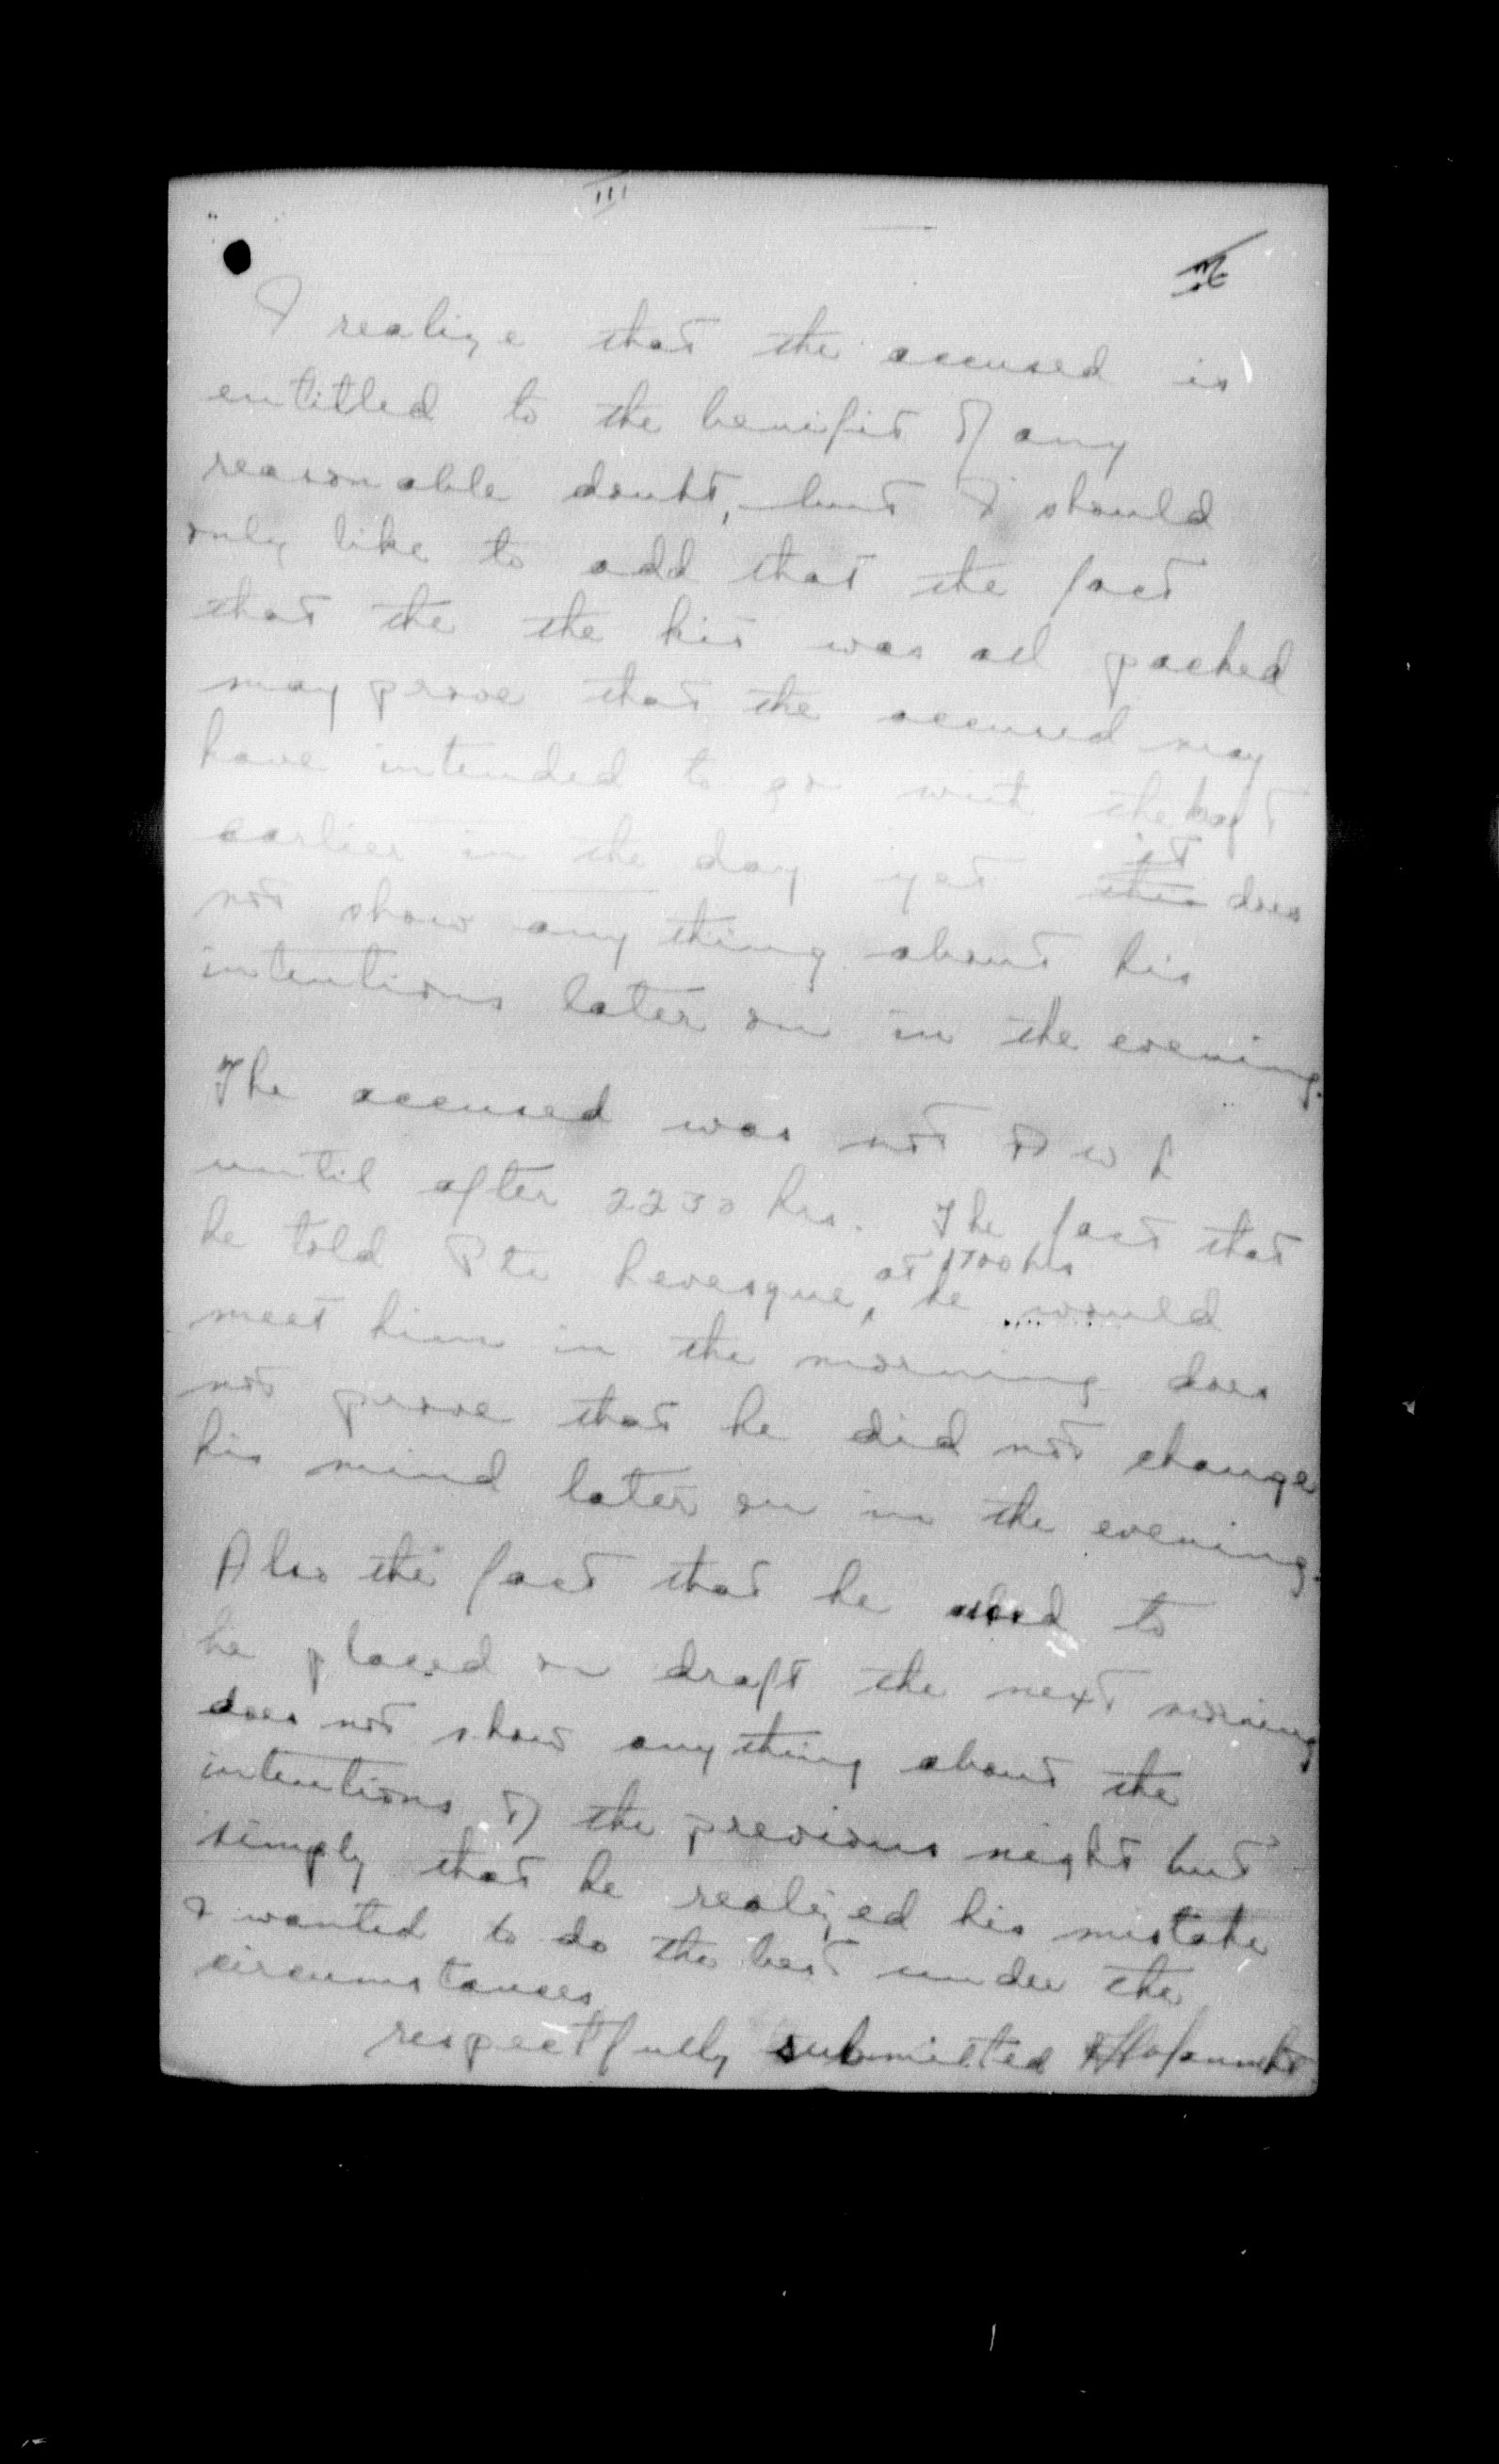 III
I realize that the accused is
entitled to the benifit of any
reasonable doubt, but I should
only like to add that the fact
that the the kit was all packed
may prove that the accused may
have intended to go with the draft
earlier in the day yet this it does
not show any thing about his
intentions later on in the evening.
The accused was not A W L
until after 2230 hrs. The fact that
he told Pte Levesque, at 1700 hrs he would
meet him in the morning does
not prove that he did not change
his mind later on in the evening.
Also the fact that he asked to
be placed on draft the next morning
does not show any thing about the
intentions of the previous night but
simply that he realized his mistake
& wanted to do the best under the
circumstances
respectfully submitted